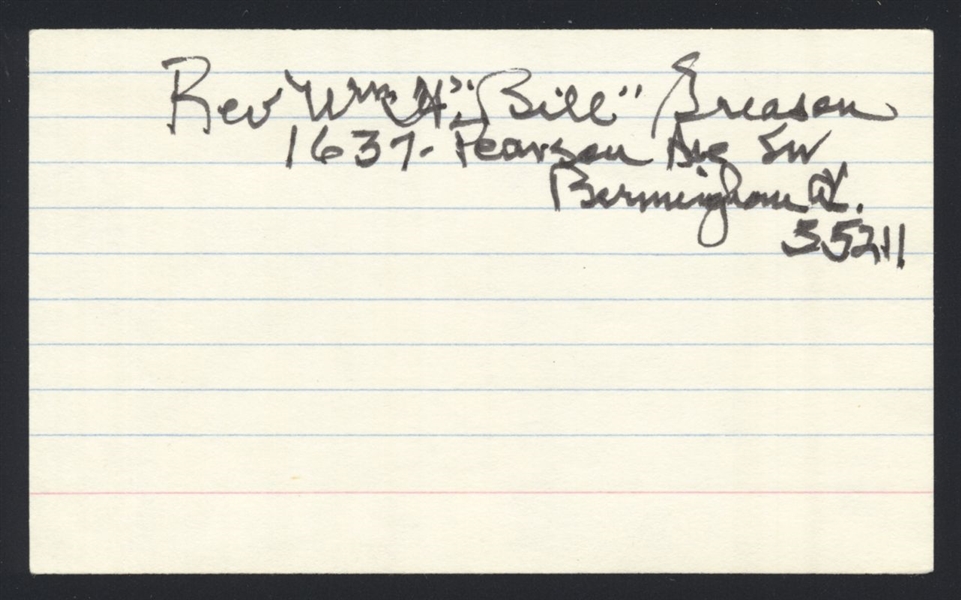 Rev Wm H. "Bill" Greason
1637- Pearson Ave SW
Bermingham Al.
35211